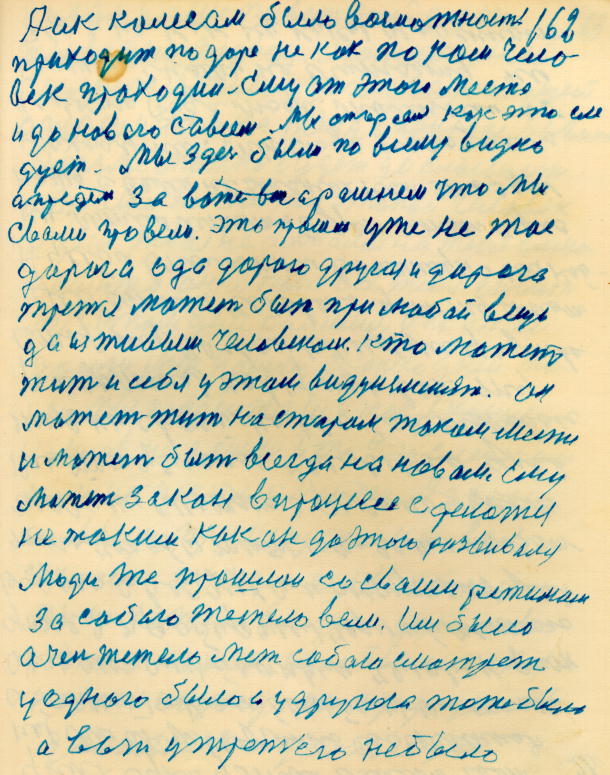 Аик колесам было возможност! 162
приходит по даре не как по ком чело-
век проходил. Ему от этого места
и до нового ставем. Мы отгрем как это сле
дует. Мы здес были по всему видно
а предем за
свами провели. Это прошли уже не тое
дарога ода дорого другая и дарога
третя может быт при любой вещь
да из живым человеком. Кто может
жит и себя у этом видуизменят. он
может жит на старом таком месте
и может быт всегда на новам. Ему
может закон в процессе сделатся
не таким как он до этого развивался
Люди же прошлои со своим режимам
за собаю тежело вели. Им было
ачен тежело меж собаю смотрет
у одного было а у другога тоже было
а вот у третего не было